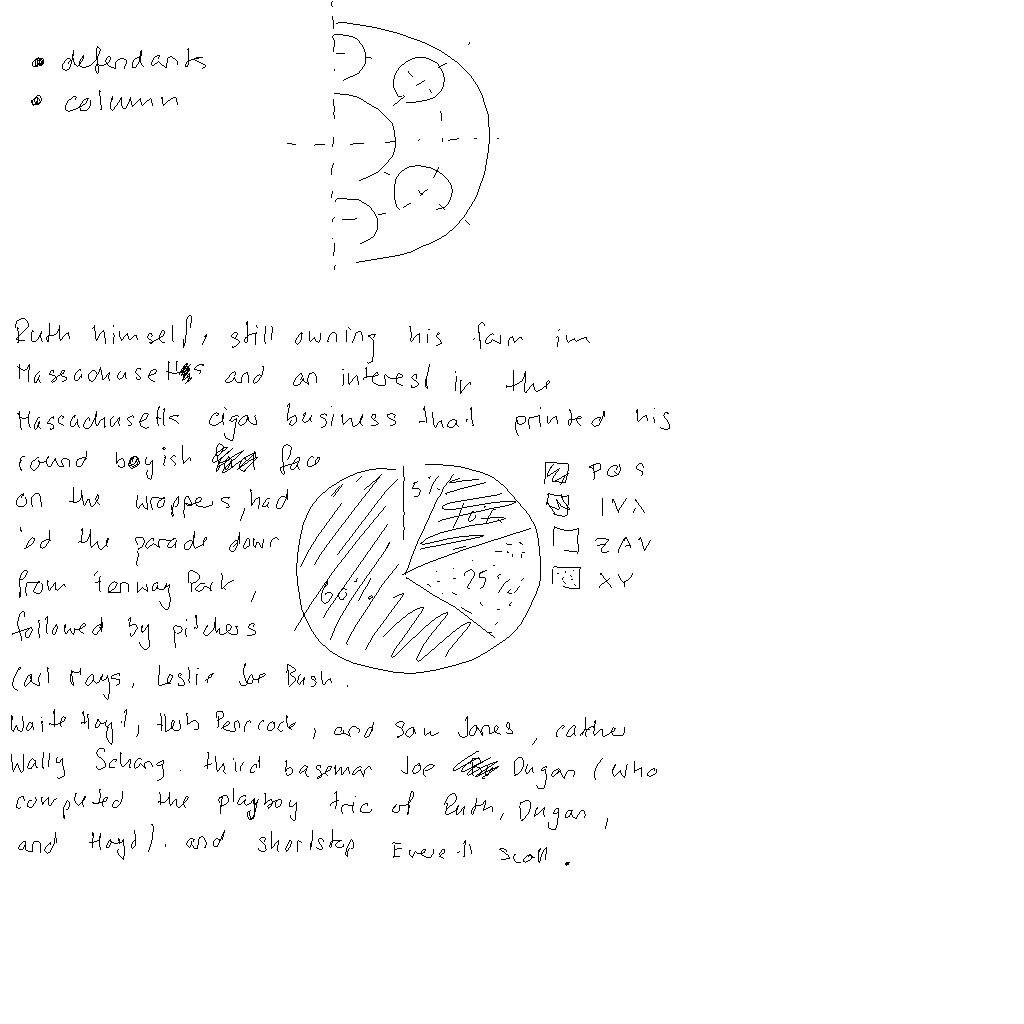 • defendants
• column
Ruth himself, still owning his farm in
Massachusetts and an interest in the
Massachusetts cigar business that printed his
round boyish face
on the wrappers, had
led the parade down
from Fenway Park,
followed by pitchers
Carl Mays, Leslie Joe Bush.
Waite Hoyt, Herb Pennock, and Sam Jones, catcher
Wally Schang. third baseman Joe Dugan (who
completed the playboy trio of Ruth, Dugan,
and Hoyt). and shortstop Everett Scott.
5%
10%
25%
60%
POS
IVX
ZAV
XY